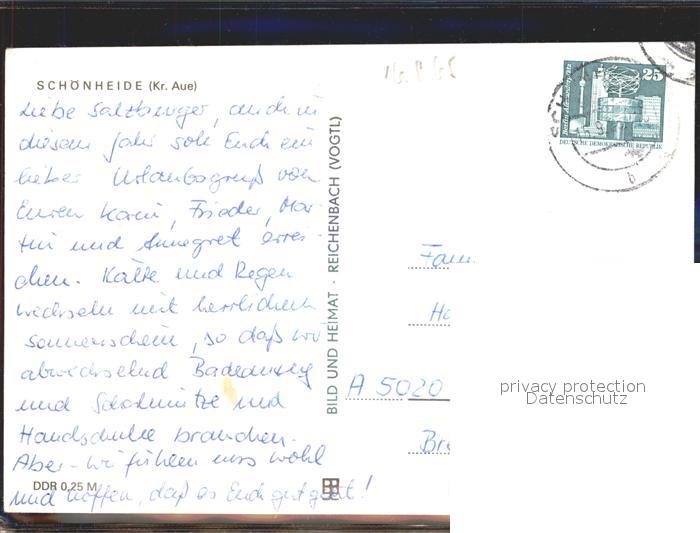 SCHÖNHEIDE (Kr. Aue)
Liebe Salzburger, auch in
diesem Jahr soll Euch ein
lieber Urlaubsgruß von
Euren Karin, Frieder, Mar-
tin und Annegret errei-
chen. Kälte und Regen
wechseln mit herrlichem
Sonnenschein, so daß wir
abwechselnd Badeanzug
und Schalmütze und
Handschuhe brauchen.
Aber - wir fühlen uns wohl
und hoffen, daß es Euch gut geht!
DDR 0,25 M
BILD UND HEIMAT · REICHENBACH (VOGTL)
25
Berlin, Alexanderplatz
DEUTSCHE DEMOKRATISCHE REPUBLIK
Fam.
Ha
A 5020
privacy protection
Datenschutz